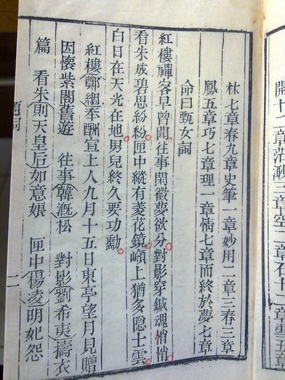 林七章春九章史筆一章妙用二章三春三章
鳳五章巧七章理一章情七章而終於夢七章
命曰甄女詞
紅樓禪客早曾聞往事閑徵夢欲分對影穿鍼魂悄悄
看朱成碧思紛紛匣中縱有菱花鏡嶺上猶多隱士雲
白日在天光在地男兒終久要功勳
紅樓鄭絪奉酬宣上人九月十五日東亭望月見贈
因懷紫閣舊遊 往事韓漑松 對影劉希夷擣衣
篇 看朱則天皇后如意娘 匣中楊凌明妃怨